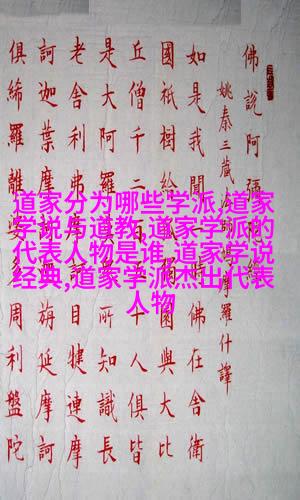 道家分为哪些学派,道家
学说与道教,道家学派的
代表人物是谁,道家学说
经典,道家学派杰出代表
人物
佛說阿彌
姚秦三藏摩羅什譯
如是我聞一時佛在舍衛
國祇樹給園與大比
丘僧千二十人俱皆
是大阿羅所知識長
老舍利弗目犍連摩
訶迦葉摩旃延摩訶
俱絺羅離多周利盤陀